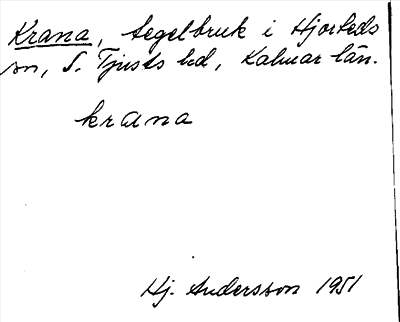 Krana, tegelbruk i Hjorteds
sn, S. Tjusts hd, Kalmar län.
krana
Hj. Andersson 1951